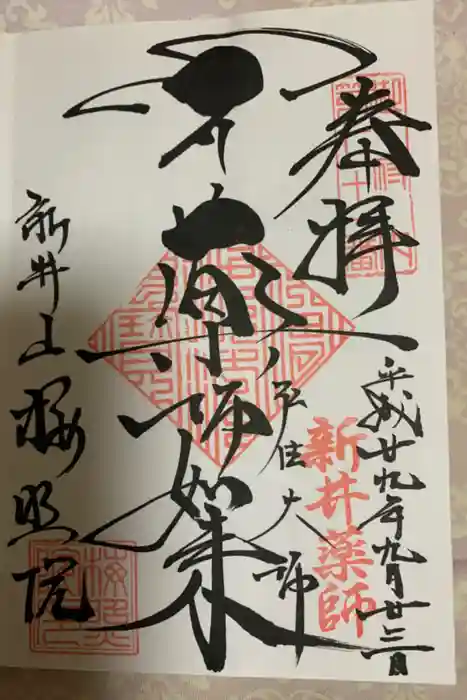 奉拝
平成廿九年九月廿三日
新井薬師
薬師如来
弘法大師
新井山梅照院